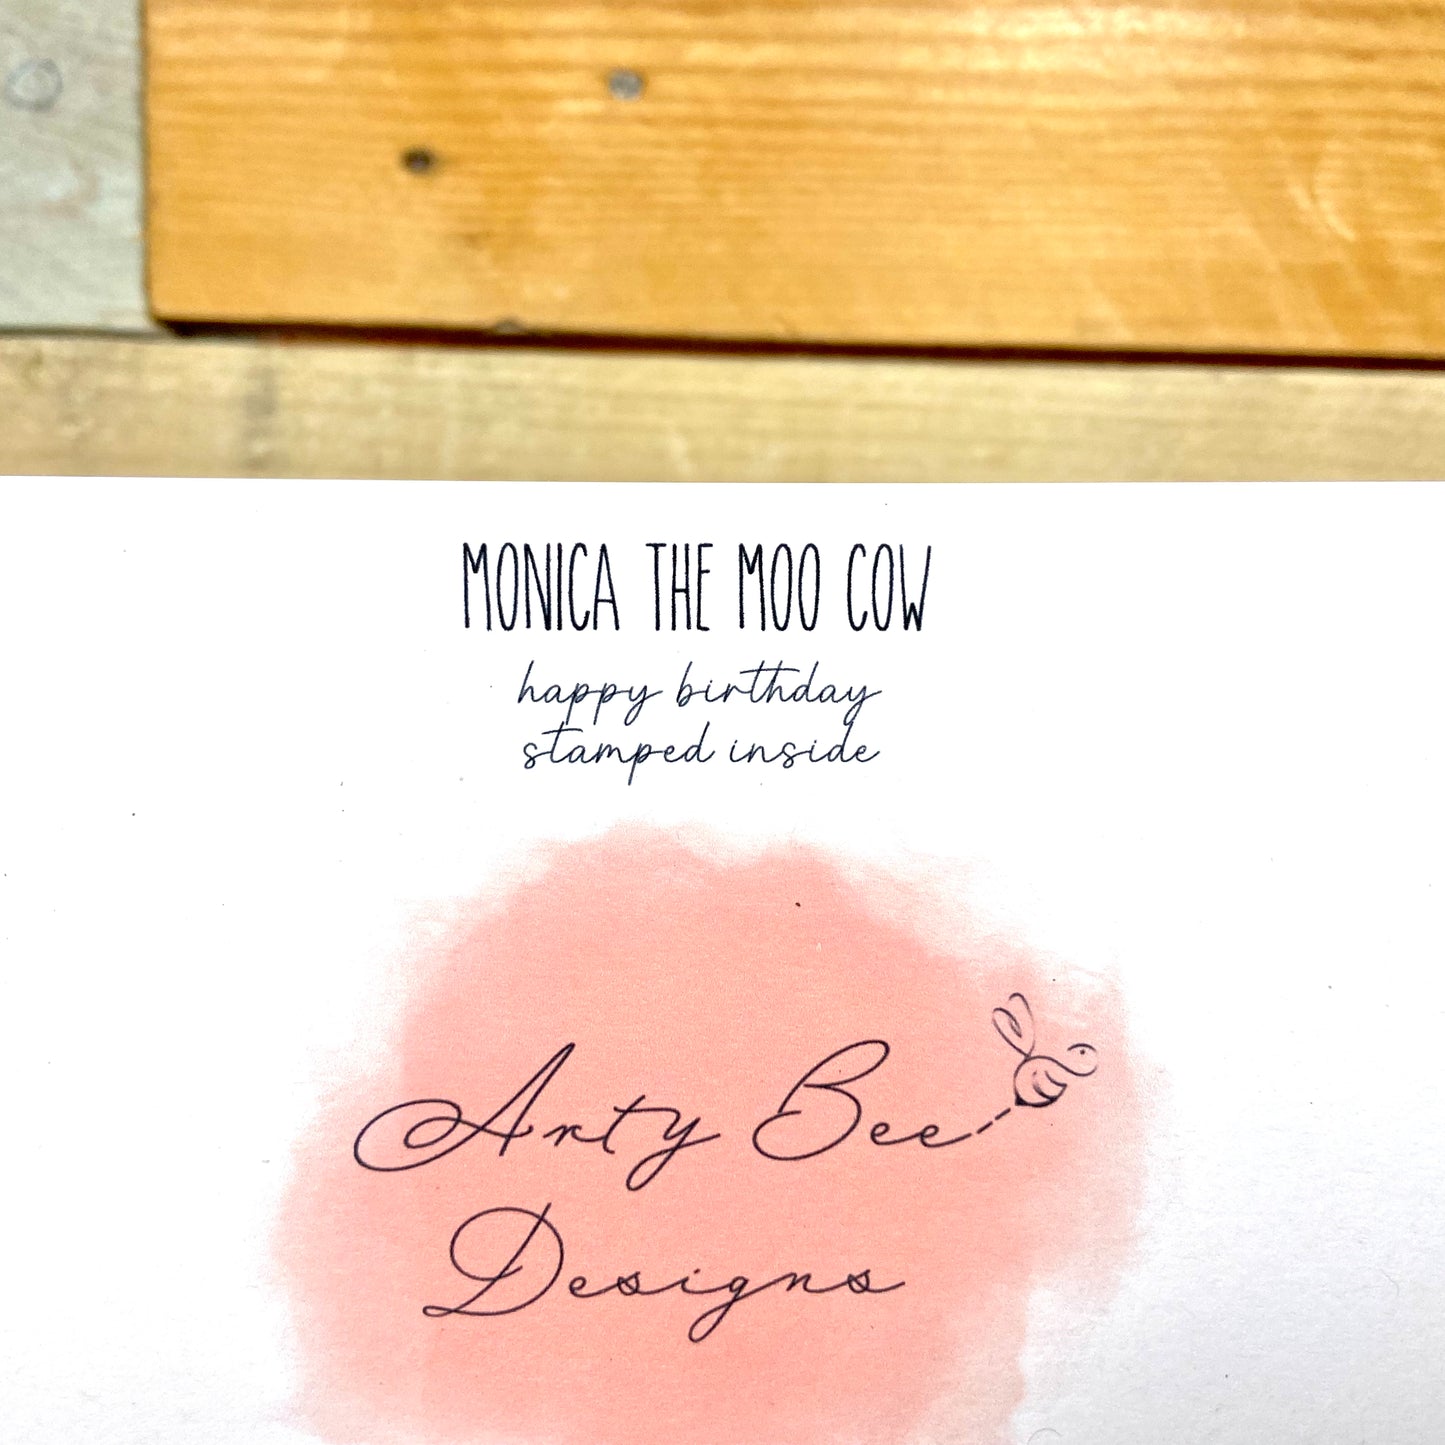 MONICA THE MOO COW
happy birthday
stamped inside
Arty Bee
Designs